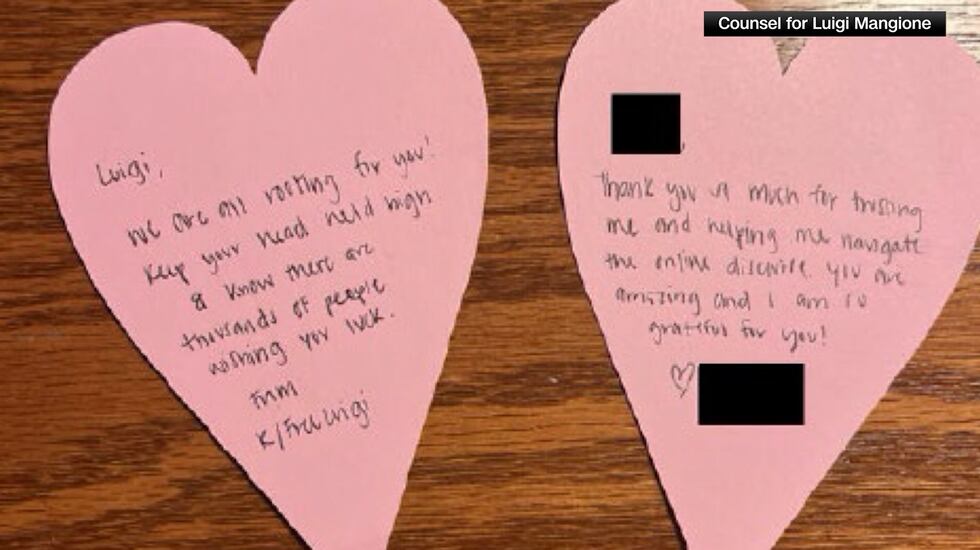 Counsel for Luigi Mangione
Luigi,
we are all rooting for you!
Keep your head held high
& know there are
thousands of people
wishing you luck.
From
r/FreeLuigi
Thank you so much for trusting
me and helping me navigate
the online discourse. you are
amazing and I am so
grateful for you!
♡